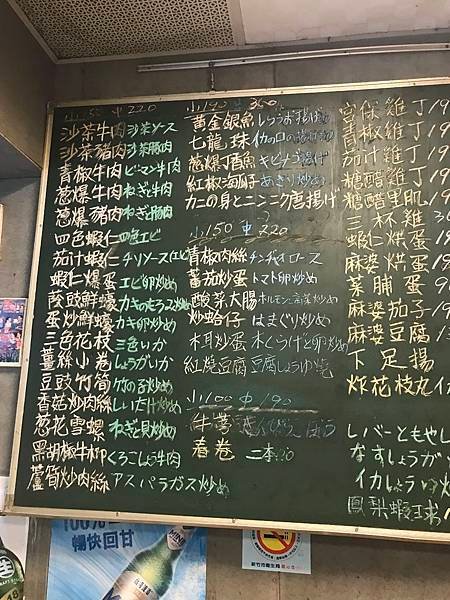 小150 中220
沙茶牛肉 沙茶ソース
沙茶豬肉 沙茶豚肉
青椒牛肉 ピーマン牛肉
葱爆牛肉 ねぎと牛肉
葱爆豬肉 ねぎと豚肉
四色蝦仁 四色エビ
茄汁蝦仁 チリソースエビ
蝦仁爆蛋 エビ卵炒め
蔭豉鮮蠔
蛋炒鮮蠔 カキ卵炒め
三色花枝 三色いか
薑絲小卷 しょうがいか
豆豉竹筍 竹の子炒め
香菇炒肉絲 しいたけ炒め
葱花雪螺 ねぎと貝炒め
黑胡椒牛柳 くろこしょう牛肉
蘆筍炒肉絲 アスパラガス炒め
小190 中360
黄金銀魚 しらうお揚げ
七龍珠 イカの口
葱爆丁香魚 キビナゴ揚げ
紅椒海瓜子 あさり炒め
カニの身とニンニク唐揚げ
小150 中220
青椒肉絲 チンジャオロース
蕃茄炒蛋 トマト卵炒め
酸菜大腸 ホルモンと高菜炒め
炒蛤仔 はまぐり炒め
木耳炒蛋 木くらげと卵炒め
紅燒豆腐 豆腐しょうゆ焼
小100 中190
牛蒡
春卷 二本
宮保雞丁 19
青椒雞丁 19
茄汁雞丁 19
糖醋雞丁 19
糖醋里肌 19
三杯雞
蝦仁烘蛋 19
麻婆烘蛋 19
菜脯蛋
麻婆茄子 19
麻婆豆腐
下足揚
炸花枝丸 イカ
レバーともやし
なすしょうが
イカしょうゆ
鳳梨蝦球
100%
暢快回甘
新竹市衛生局